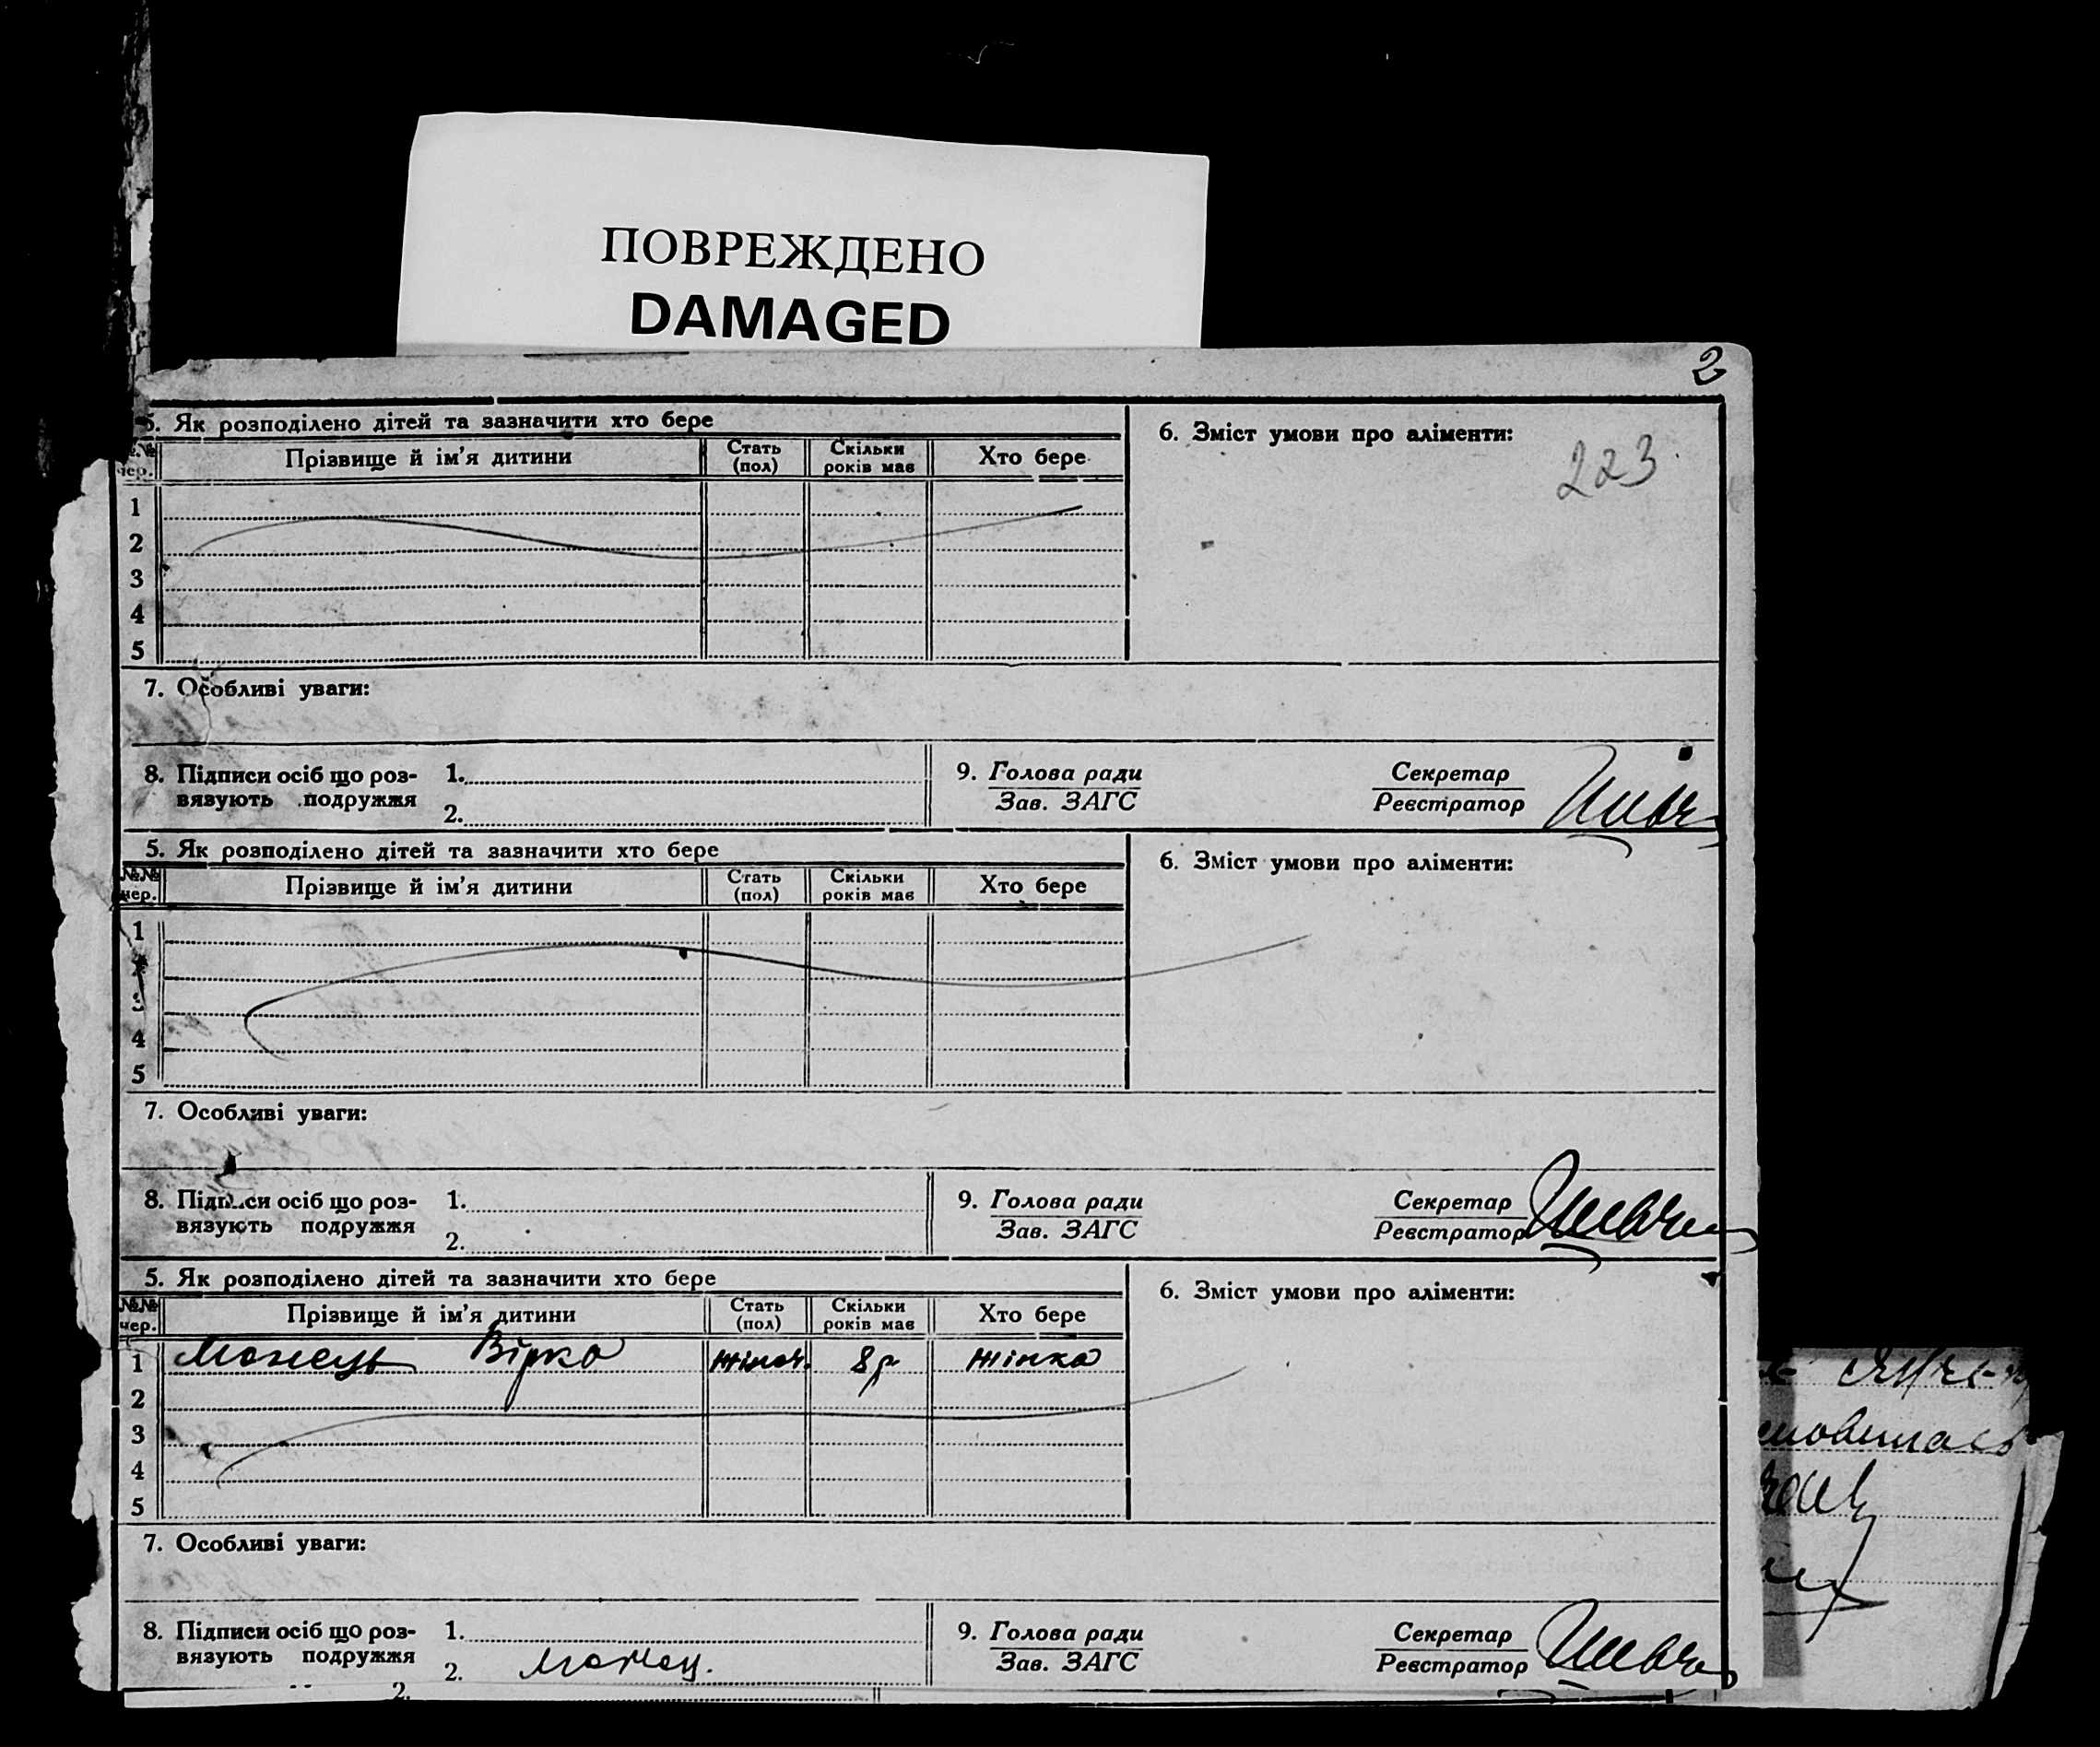 ПОВРЕЖДЕНО
DAMAGED
2
5. Як розподілено дітей та зазначити хто бере
6. Зміст умови про аліменти:
223
№№ чер. Прізвище й ім'я дитини Стать (пол) Скільки років має Хто бере
1
2
3
4
5
7. Особливі уваги:
8. Підписи осіб що роз- 1. 9. Голова ради Секретар
вязують подружжя 2. Зав. ЗАГС Реєстратор
5. Як розподілено дітей та зазначити хто бере
6. Зміст умови про аліменти:
№№ чер. Прізвище й ім'я дитини Стать (пол) Скільки років має Хто бере
1
3
4
5
7. Особливі уваги:
8. Підписи осіб що роз- 1. 9. Голова ради Секретар
вязують подружжя 2. Зав. ЗАГС Реєстратор
5. Як розподілено дітей та зазначити хто бере
6. Зміст умови про аліменти:
№№ чер. Прізвище й ім'я дитини Стать (пол) Скільки років має Хто бере
1 Вірка жіноч. 8 р жінка
2
3
4
5
7. Особливі уваги:
8. Підписи осіб що роз- 1. 9. Голова ради Секретар
вязують подружжя 2. Зав. ЗАГС Реєстратор
2.